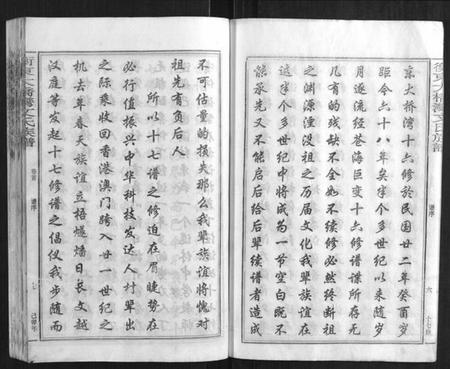 京大桥湾十六修於民国廿二年癸酉岁
距今六十八年矣半个多世纪以来随岁
月逐流经苍海巨变十六修谱谍所存无
几有的残缺不全如不续修必然终断祖
之渊源湮没祖之历届文化我辈族谊在
这半个多世纪中将成为一节空白既不
能承先又不能启后给后辈续谱者造成
谱序
六
不可估量的损失那么我辈族谊将愧对
祖先有负后人
所以十七谱之修迫在眉睫势在
必行值振兴中华科技发达人材辈出
之际乘收回香港澳门跨入廿一世纪之
机去年春天族谊立梧燔墙日长文越
汉庭等发起十七修谱之倡仪我步随而
卷首
谱序
七
己卯年